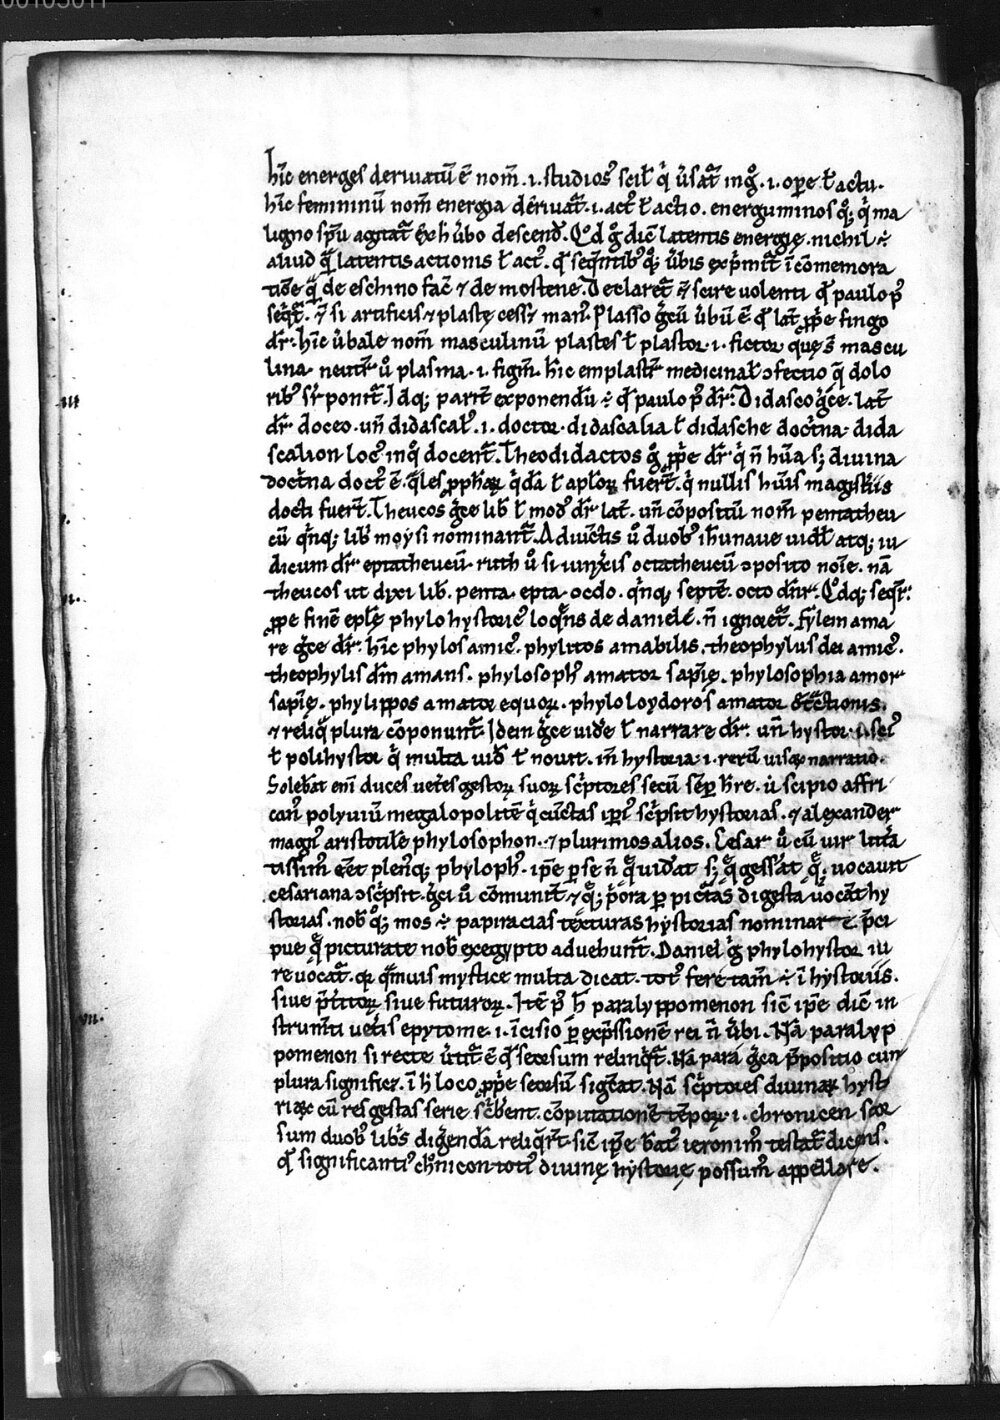 hic energes deriuatū ē nom̄ .i. studiosꝰ scił q̇ ūsat̄ in g̊ .i. ope ł actu.
hīc femininū nom̄ energia deriuat̄ .i. actꝰ ł actio. energuminos q̊ꝫ q̇ ma
ligno sp̄u agitat̄ ex h̄ ūbo descend̄. Qd̄ g̊ dic̄ latentis energię. nichil ÷
aliud q̄ latentis actionis ł actꝰ. q̄ seq̄ntibꝰ q̊ꝫ ūbis exp̄mit̄ ī cōmemora
tiōe q̄ de eschino fac̄ ⁊ de mostene. Declaret̄ scire uolenti q̄ paulo pꝰ
seq̄t̄. si artificis ⁊ plastę cessȳ manꝰ. Plasso ḡcū ūbū ē q̄ lat̄ ꝓp̄e fingo
dr̄. hīc ūbale nom̄ masculinū plastes ł plastor .i. fictor quę s̄ mascu
lina. neutr̄ ů plasma .i. figm̄. hīc emplastr̄ medicinał ↄfectio q̄ dolo
ribꝰ sr̄ ponit̄. Idqꝫ parit̄ exponendū ÷ q̄ paulo pꝰ dr̄. Didasco ḡce. lat̄
dr̄ doceo. un̄ didascalꝰ .i. doctor. didascalia ł didasche doct̄na. dida
scalion locꝰ in q̊ docent̄. Theodidactos g̊ ꝓp̄e dr̄ q̇ n̄ hūa sꝫ diuina
doct̄na doctꝰ ē. q̄les ꝓph̄aꝝ q̇dā ł aploꝝ fuer̄t. q̇ nullis hūis magistris
docti fuer̄t. Theucos ḡce lib̄ ł modꝰ dr̄ lat̄. un̄ cōpositū nom̄ pentatheu
cū q̇nqꝫ lib̄ moysi nominant̄. Adiūctis ů duobꝰ ih̄unaue uidł atqꝫ iu
dicum dr̄ eptatheucū. ruth ů si iunxis octatheucū ↄposito noīe. nā
theucos ut dixi lib̄. penta. epta. octo. q̇nqꝫ septē. octo dn̄r. Qd̄qꝫ seqr̄.
ꝓp̄e finē eplę phylohystoricꝰ loq̄ns de daniele. n̄ ignoret̄. fylein ama
re ḡce dr̄. hīc phylos amicꝰ. phylitos amabilis. theophylus dei amicꝰ.
theophylis dm̄ amans. phylosophꝰ amator sapię. phylosophia amor
sapię. phylippos amator equoꝝ. phyloloydoros amator
⁊ reliq̄ plura cōponunt̄. Idein ḡce uide ł narrare dr̄. un̄ hystor .i. sciꝰ
ł polihystor q̇ multa uid̄ ł nouit. in̄ hystoria .i. rerū uisaꝝ narratio.
Solebāt eni duces uet̄es gestoꝝ suoꝝ sc̄ptores secū semꝑ h̄re. ů scipio affri
canꝰ polyuiū megalopolitē q̇ cūctas ipiꝰ sc̄psit hystorias. ⁊ alexander
magnꝰ aristotilē phylosophon. ⁊ plurimos alios. Cesar ů cū uir litt̄a
tissimꝰ eēt plenꝰqꝫ phylophꝰ. ip̄e ꝑ se n̄ q̄ uid̄at sꝫ q̄ gess̄at q̄ uocauit
cesariana ↄsc̄psit. ḡci ů cōmunit̄ ⁊ qꝫ p̄ora ꝑ pict̄as digesta uocāt hy
storias. nob̄ q̊ꝫ mos ÷ papiracias texturas hystorias nominare. p̄ci
pue q̄ picturate nob̄ ex egypto aduehunt̄. Daniel g̊ phylohystor iu
re uocat̄. qꝛ q̄muis mystice multa dicat. totꝰ fere tam̄ ÷ ī hystoriis.
siue p̄t̄itoꝝ siue futuroꝝ. Itē pꝰ h̄ paralyppomenon sic̄ ip̄e dic̄ in
strum̄ti uet̄is epytome .i. īcisio ꝑ exp̄ssionē rei n̄ ūbi. Nā paralyp
pomenon si recte ūtit̄ ē q̄ seorsum relinq̄t̄. Nā para ḡca p̄positio cum
plura significet. ī h̄ loco ꝓp̄e seorsū sig̅cat. Nā sc̄ptores diuinaꝝ hysto
riaꝝ cū res gestas serie sc̄bent cōputationē tēpoꝝ .i. chronicen seor
sum duobꝰ libꝰs digerenda reliqr̄t. sic̄ ip̄e b̄atꝰ ieronimꝰ testat̄ dicens.
q̄ significantiꝰ chr̄nicon totiꝰ diuinę hystorię possumꝰ appellare.